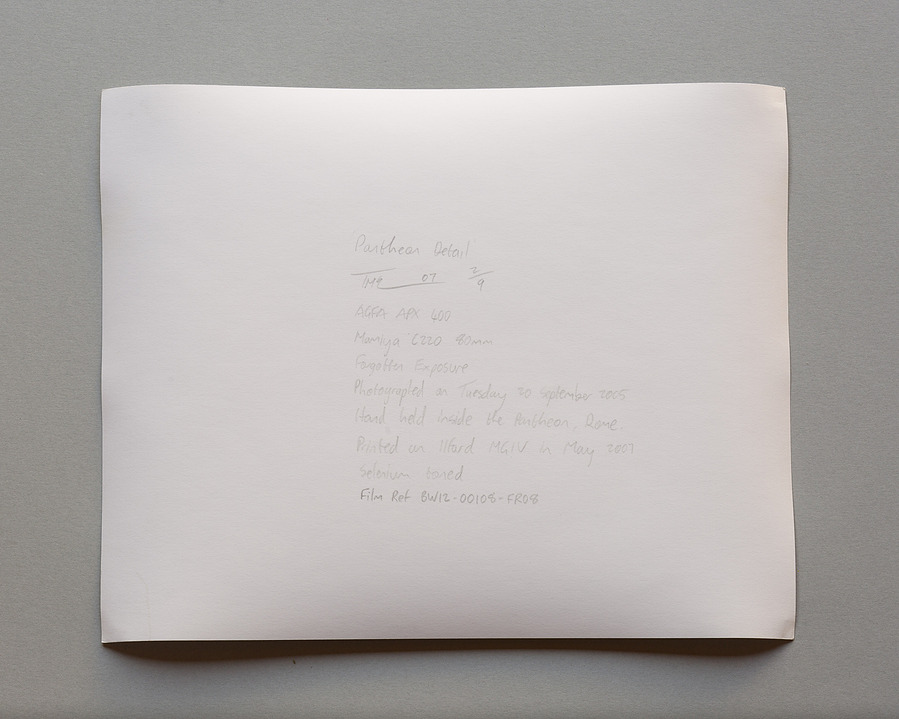 Pantheon Detail
07 2/9
AGFA APX 400
Mamiya C220 80mm
Forgotten Exposure
Photographed on Tuesday 20 September 2005
Hand held inside the Pantheon, Rome.
Printed on Ilford MGIV in May 2007
Selenium toned
Film Ref BW12-00108-FR08